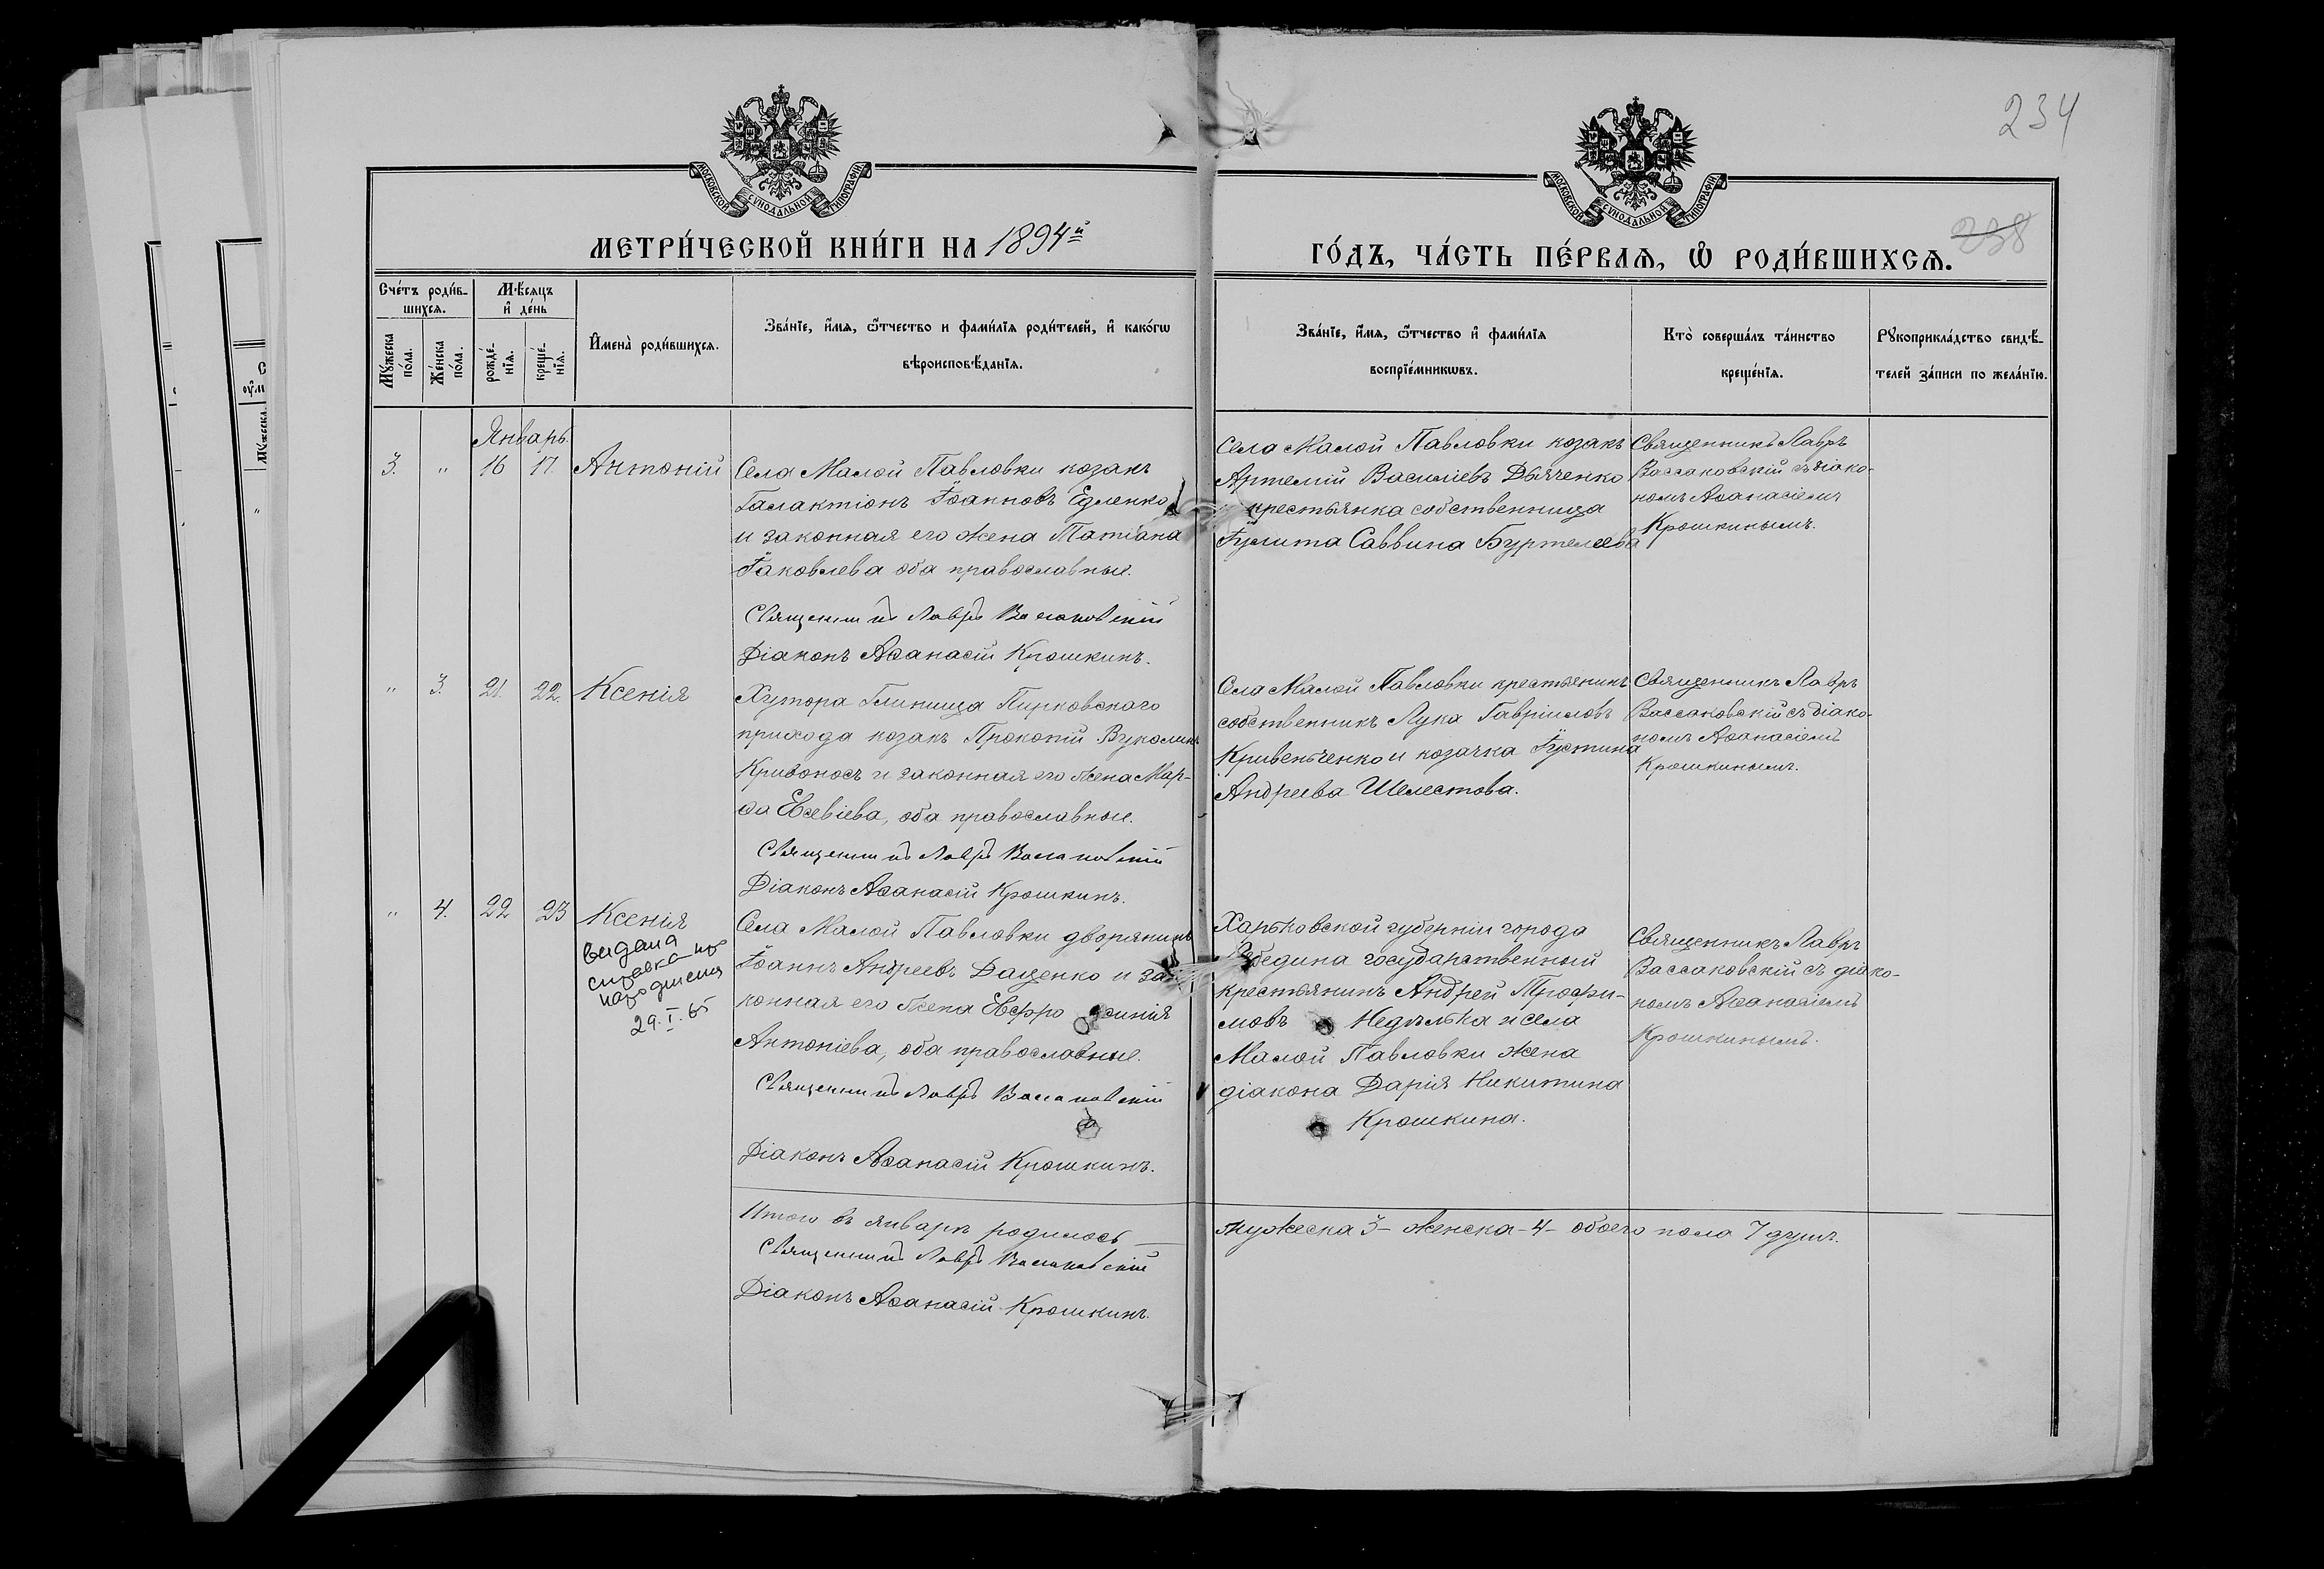 234
238
МОСКОВСКОЙ СѴНОДАЛЬНОЙ ТИПОГРАФІИ.
МОСКОВСКОЙ СѴНОДАЛЬНОЙ ТИПОГРАФІИ.
МЕТРИ́ЧЕСКОЙ КНИ́ГИ НА 1894й
ГО́ДЪ, ЧА́СТЬ ПЕ́РВАѦ, Ѡ РОДИ́ВШИХСѦ.
Сче́тъ роди́в-
шихсѧ.
Мꙋ́жеска
по́ла.
Же́нска
по́ла.
Мѣ́сѧцъ
и҆ де́нь
рожде́-
нїѧ.
креще́-
нїѧ.
И҆мена̀ роди́вшихсѧ.
Зва́нїе, и҆́мѧ, ѻ҆́тчество и фами́лїѧ роди́телей, и҆ како́гѡ
вѣроисповѣ́данїѧ.
Зва́нїе, и҆́мѧ, ѻ҆́тчество и҆ фами́лїѧ
воспрїе́мникѡвъ.
Кто̀ соверша́лъ та́инство
креще́нїѧ.
Рꙋкоприкла́дство свидѣ́-
телей за́писи по жела́нїю.
Январь.
3. " 16 17. Антоній
Села Малой Павловки козакъ
Галактіонъ Іоанновъ Едленко
и законная его жена Татіана
Іаковлева оба православные.
Священникъ Лавръ Вассаковскій
Діаконъ Аѳанасій Крошкинъ.
Села Малой Павловки козакъ
Артемій Василіевъ Дьяченко
и крестьянка собственница
Іулита Саввина Буртелеева
Священникъ Лавръ
Вассаковскій съ діако-
номъ Аѳанасіемъ
Крошкинымъ.
" 3. 21. 22. Ксенія
Хутора Глинища Пирковского
прихода козакъ Прокопій Вуколинъ
Кривоносъ и законная его жена Мар-
ѳа Евсевіева, оба православные.
Священникъ Лавръ Вассаковскій
Діаконъ Аѳанасій Крошкинъ.
Села Малой Павловки крестьянинъ
собственникъ Лука Гавріиловъ
Кривенченко и козачка Іустина
Андреева Шелестова.
Священникъ Лавръ
Вассаковскій съ діако-
номъ Аѳанасіемъ
Крошкинымъ.
" 4. 22 23 Ксенія
видана
справка про
народження
29.I.65
Села Малой Павловки дворянинъ
Іоаннъ Андреевъ Даценко и за-
конная его жена Евфросинія
Антоніева, оба православные.
Священникъ Лавръ Вассаковскій
Діаконъ Аѳанасій Крошкинъ.
Харьковской губерніи города
Лебедина государственный
крестьянинъ Андрей Трофи-
мовъ Недѣлька и села
Малой Павловки жена
діакона Дарія Никитина
Крошкина.
Священникъ Лавръ
Вассаковскій съ діако-
номъ Аѳанасіемъ
Крошкинымъ.
Итого въ январѣ родилось —
мужеска 3 – женска – 4 – обоего пола 7 душъ.
Священникъ Лавръ Вассаковскій
Діаконъ Аѳанасій Крошкинъ.